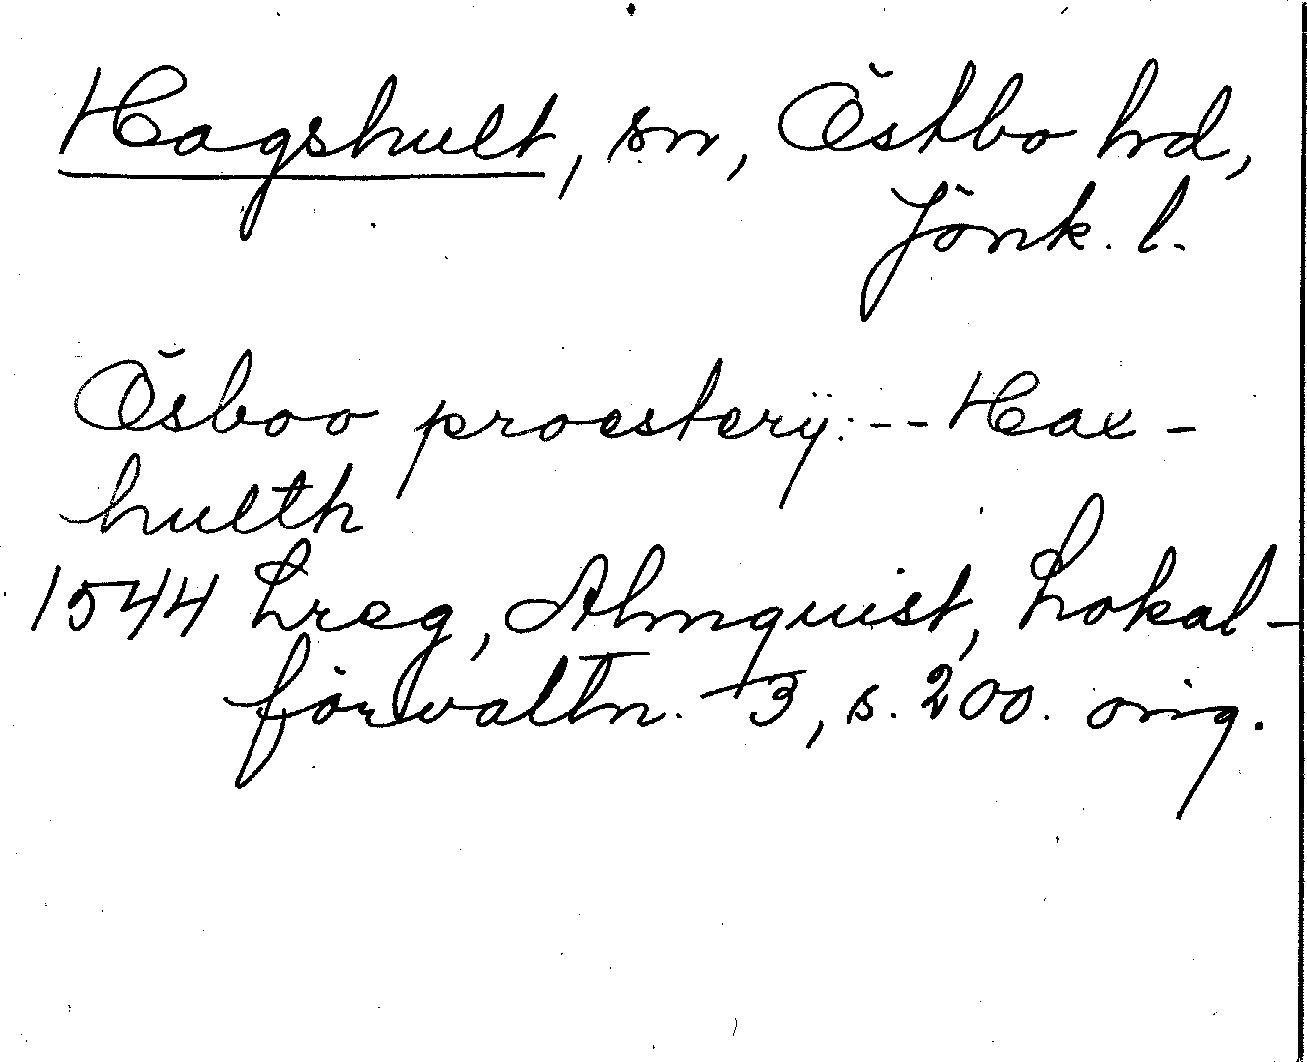 Hagshult, sn, Östbo hd,
Jönk. l.
Ösboo proesterÿ: -- Hax-
hulth
1544 Lreg, Almquist, Lokal-
förvaltn. 3, s. 200. orig.